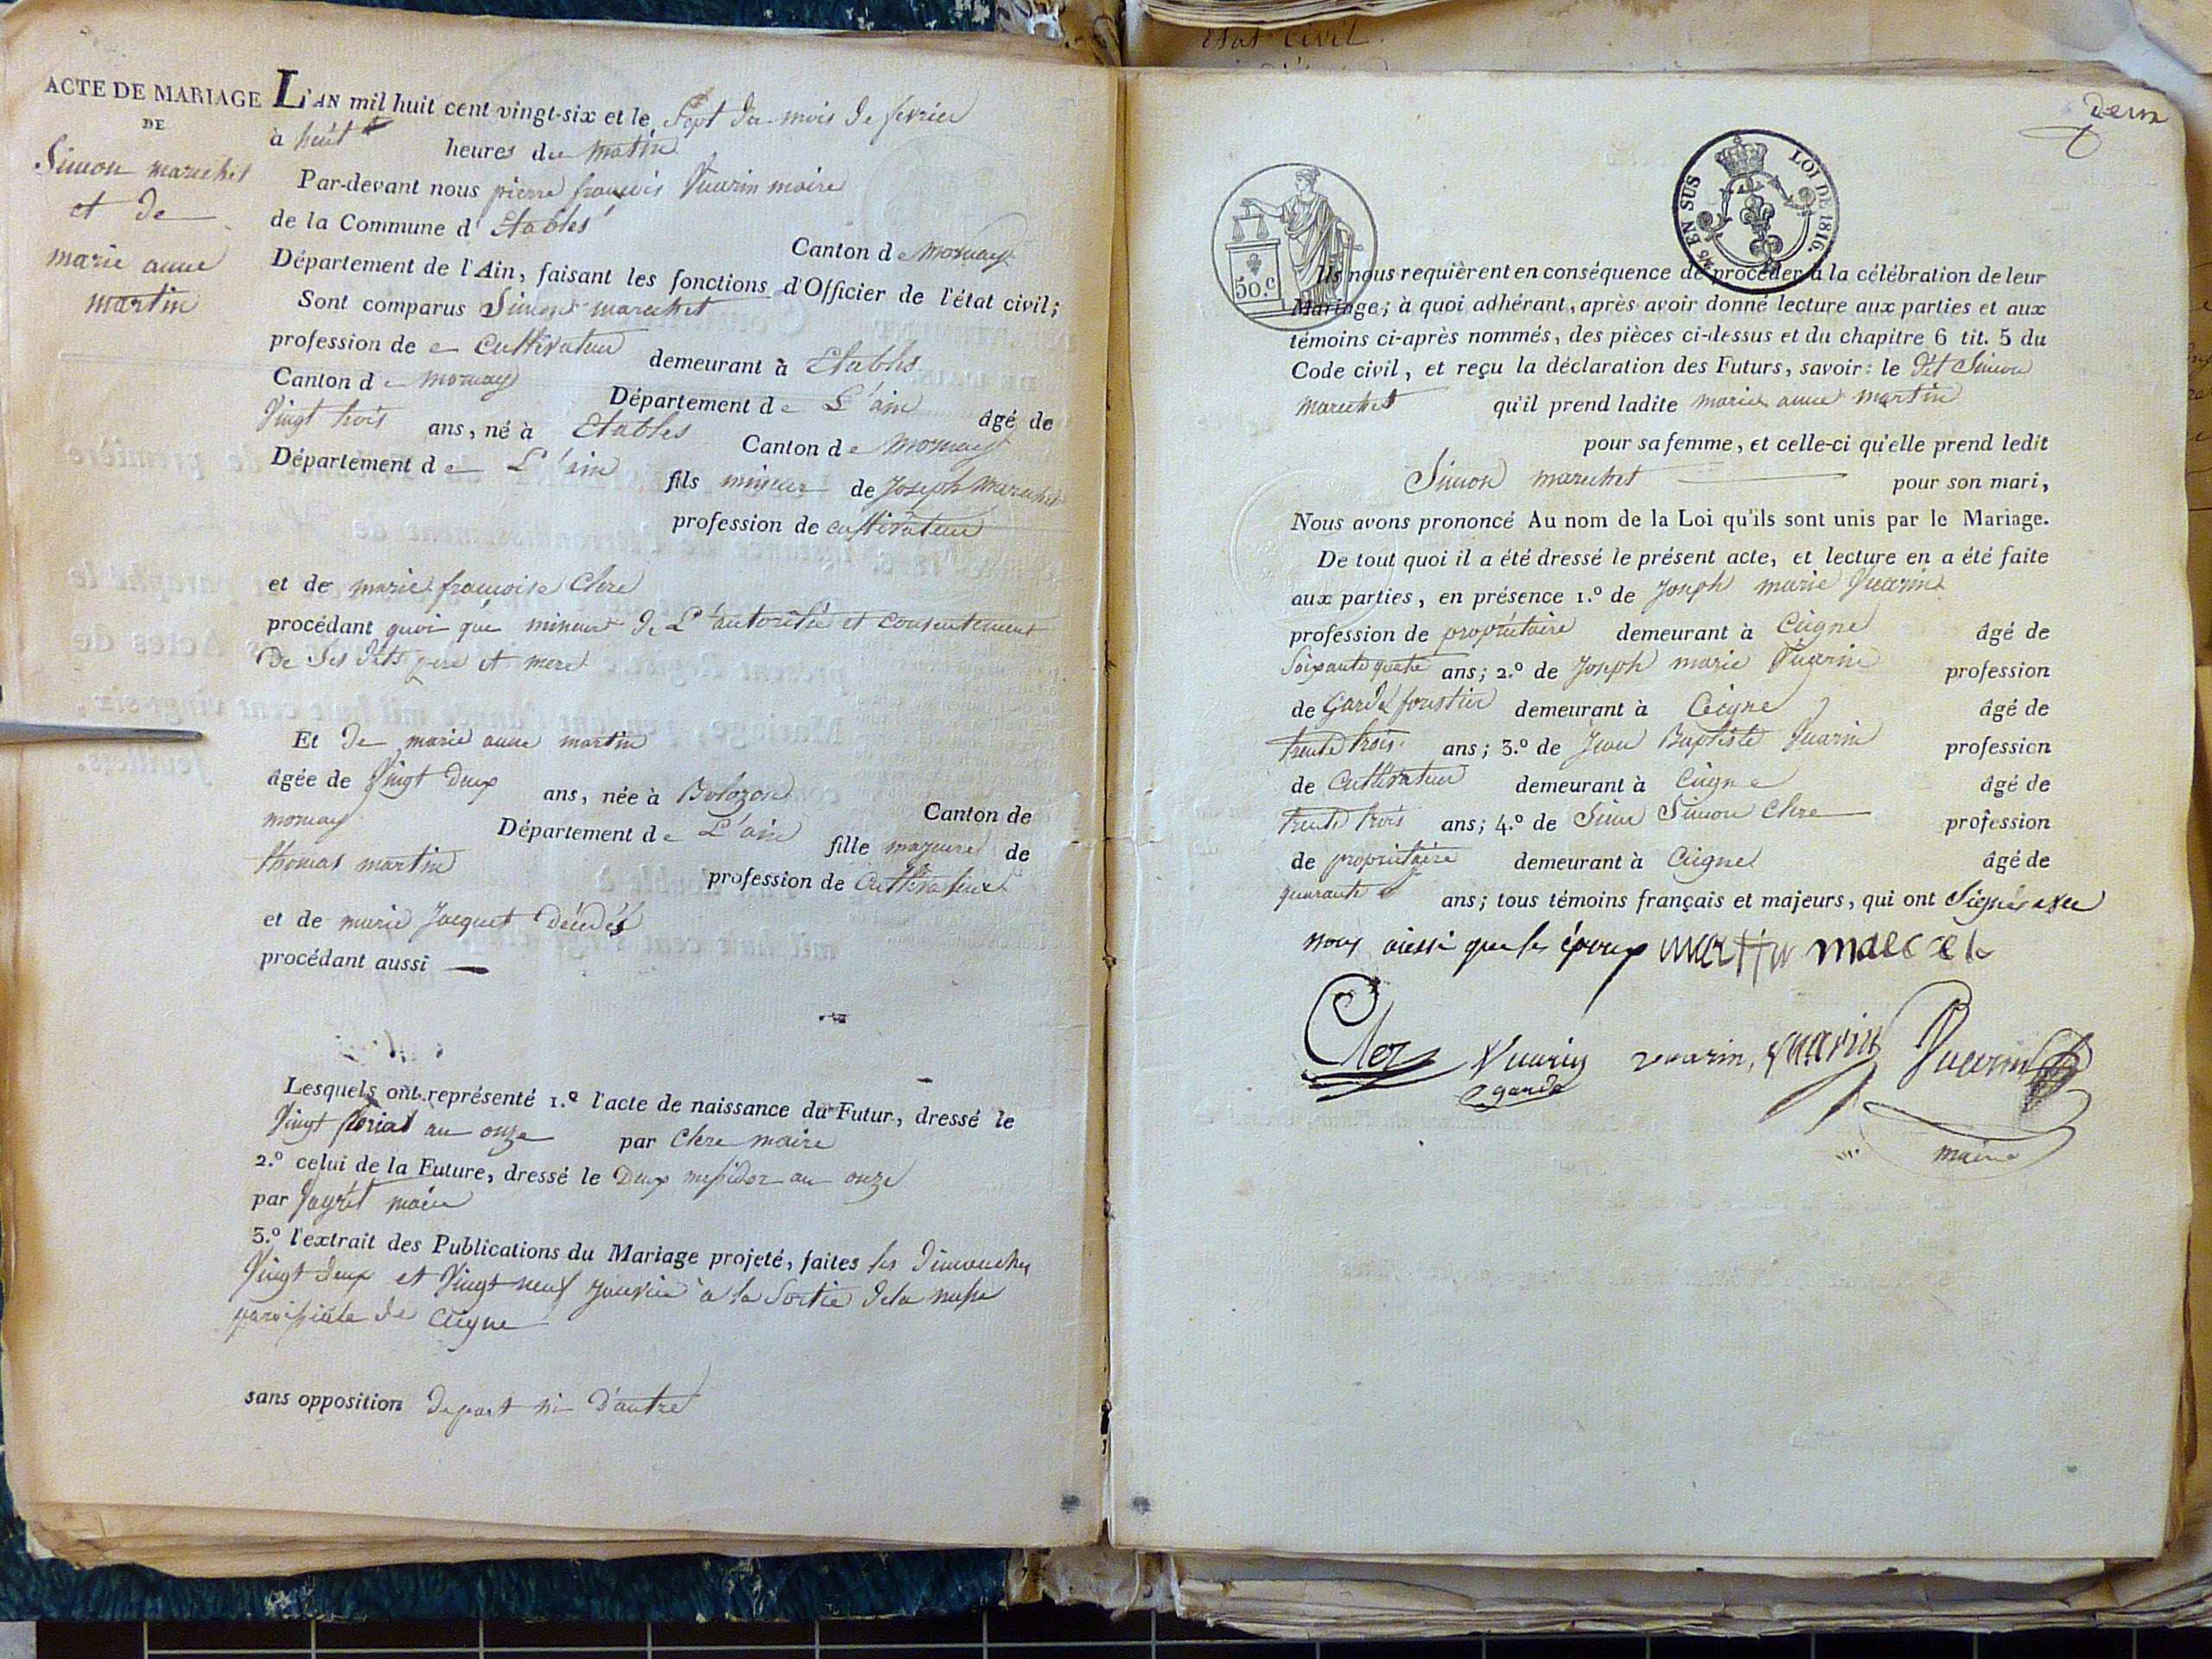 ACTE DE MARIAGE
DE
Simon marechet
et de
marie anne
martin
L'AN mil huit cent vingt-six et le Sept du mois de fevrier
à huit heures du matin
Par-devant nous pierre françois Vuarin maire
de la Commune d' Etables Canton de mornay
Département de l'Ain, faisant les fonctions d'Officier de l'état civil;
Sont comparus Simon marechet
profession de cultivateur demeurant à Etables
Canton de mornay Département de L'ain âgé de
Vingt trois ans, né à Etables Canton de mornay
Département de L'ain fils mineur de Joseph marechet
profession de cultivateur
et de marie françoise Clerc
procédant quoi que mineur de L'autorité et consentement
de Ses dits pere et mere
Et de marie anne martin
âgée de Vingt deux ans, née à Bolozon Canton de
mornay Département de L'ain fille majeure de
thomas martin profession de cultivateur
et de marie Jacquet décédés
procédant aussi
Lesquels ont représenté 1.º l'acte de naissance du Futur, dressé le
Vingt florial an onze par Clerc maire
2.º celui de la Future, dressé le Deux messidor an onze
par maire
3.º l'extrait des Publications du Mariage projeté, faites les dimanches
Vingt deux et Vingt neuf Janvier à la Sortie dela messe
paroissiale de Ceigne
sans opposition depart ni d'autre
Etat Civil.
deux
50.c
EN SUS
LOI DE 1816.
Ils nous requièrent en conséquence de procéder à la célébration de leur
Mariage; à quoi adhérant, après avoir donné lecture aux parties et aux
témoins ci-après nommés, des pièces ci-dessus et du chapitre 6 tit. 5 du
Code civil, et reçu la déclaration des Futurs, savoir: le dit Simon
marechet qu'il prend ladite marie anne martin
pour sa femme, et celle-ci qu'elle prend ledit
Simon marechet pour son mari,
Nous avons prononcé Au nom de la Loi qu'ils sont unis par le Mariage.
De tout quoi il a été dressé le présent acte, et lecture en a été faite
aux parties, en présence 1.º de Joseph marie Vuarin
profession de propriétaire demeurant à Ceigne âgé de
Soixante quatre ans; 2.º de Joseph marie Vuarin profession
de Garde forestier demeurant à Ceigne âgé de
trente trois ans; 3.º de Jean Baptiste Vuarin profession
de Cultivateur demeurant à Ceigne âgé de
trente trois ans; 4.º de Sieur Simon Clerc profession
de propriétaire demeurant à Ceigne âgé de
quarante ans; tous témoins français et majeurs, qui ont Signés avec
nous aussi que les époux martin
Clerc Vuarin vuarin, vuarin Vuarin
garde
maire